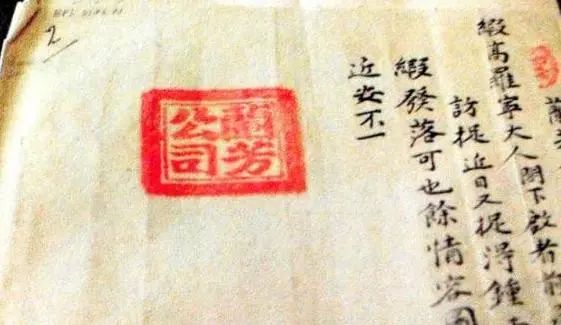 2/
蘭芳
緞高羅寧大人閣下啟者前
訪捉近日又捉淂鍾
緞發落可也餘情容
近安不一
蘭芳
公司